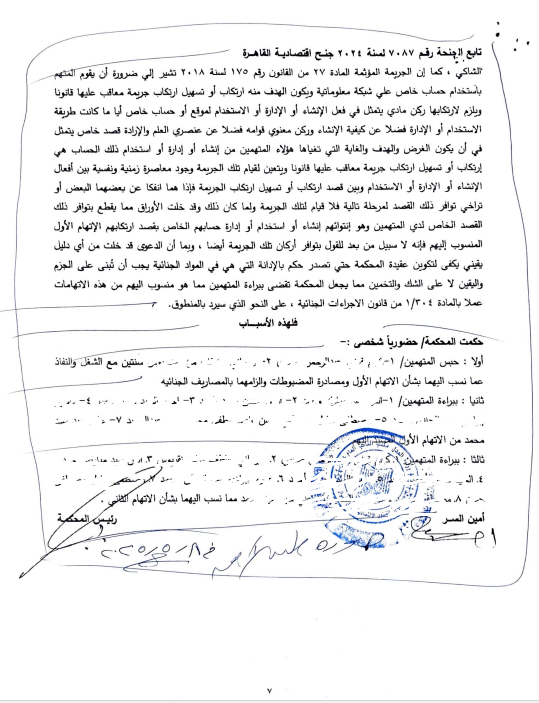 تابع الجنحة رقم ٧٠٨٧ لسنة ٢٠٢٤ جنح اقتصادية القاهرة
الشاكي ، كما إن الجريمة المؤثمة المادة ٢٧ من القانون رقم ١٧٥ لسنة ٢٠١٨ تشير إلي ضرورة أن يقوم المتهم
باستخدام حساب خاص علي شبكة معلوماتية ويكون الهدف منه ارتكاب أو تسهيل ارتكاب جريمة معاقب عليها قانونا
ويلزم لارتكابها ركن مادي يتمثل في فعل الإنشاء أو الإدارة أو الاستخدام لموقع أو حساب خاص أيا ما كانت طريقة
الاستخدام أو الإدارة فضلا عن كيفية الإنشاء وركن معنوي قوامه فضلا عن عنصري العلم والإرادة قصد خاص يتمثل
في أن يكون الغرض والهدف والغاية التي تغياها هؤلاء المتهمين من إنشاء أو إدارة أو استخدام ذلك الحساب هي
إرتكاب أو تسهيل ارتكاب جريمة معاقب عليها قانونا ويتعين لقيام تلك الجريمة وجود معاصرة زمنية ونفسية بين أفعال
الإنشاء أو الإدارة أو الاستخدام وبين قصد ارتكاب أو تسهيل ارتكاب الجريمة فإذا هما انفكا عن بعضهما البعض أو
تراخي توافر ذلك القصد لمرحلة تالية فلا قيام لتلك الجريمة ولما كان ذلك وقد خلت الأوراق مما يقطع بتوافر ذلك
القصد الخاص لدي المتهمين وهو إنتوائهم إنشاء أو استخدام أو إدارة حسابهم الخاص بقصد ارتكابهم الإتهام الأول
المنسوب إليهم فإنه لا سبيل من بعد للقول بتوافر أركان تلك الجريمة أيضا ، وبما أن الدعوى قد خلت من أي دليل
يقيني يكفى لتكوين عقيدة المحكمة حتي تصدر حكم بالإدانة التي هي في المواد الجنائية يجب أن تُبنى على الجزم
واليقين لا على الشك والتخمين مما يجعل المحكمة تقضى ببراءة المتهمين مما هو منسوب اليهم من هذه الاتهامات
عملا بالمادة ١/٣٠٤ من قانون الاجراءات الجنائية ، على النحو الذي سيرد بالمنطوق.
فلهذه الأسبـــاب
حكمت المحكمة/ حضورياً شخصى :-
أولا : حبس المتهمين/ ١- ٢- سنتين مع الشغل والنفاذ
عما نسب اليهما بشأن الاتهام الأول ومصادرة المضبوطات والزامهما بالمصاريف الجنائيه
ثانيا : ببراءة المتهمين/ ١- ٢- ٣- ٤-
٥- ٧-
محمد من الاتهام الأول اليهم
ثالثا : ببراءة المتهمين ٢. ٣.
٤. ٦.
٨. مما نسب اليهما بشأن الاتهام الثاني .
أمين السر رئيس المحكمة
٧